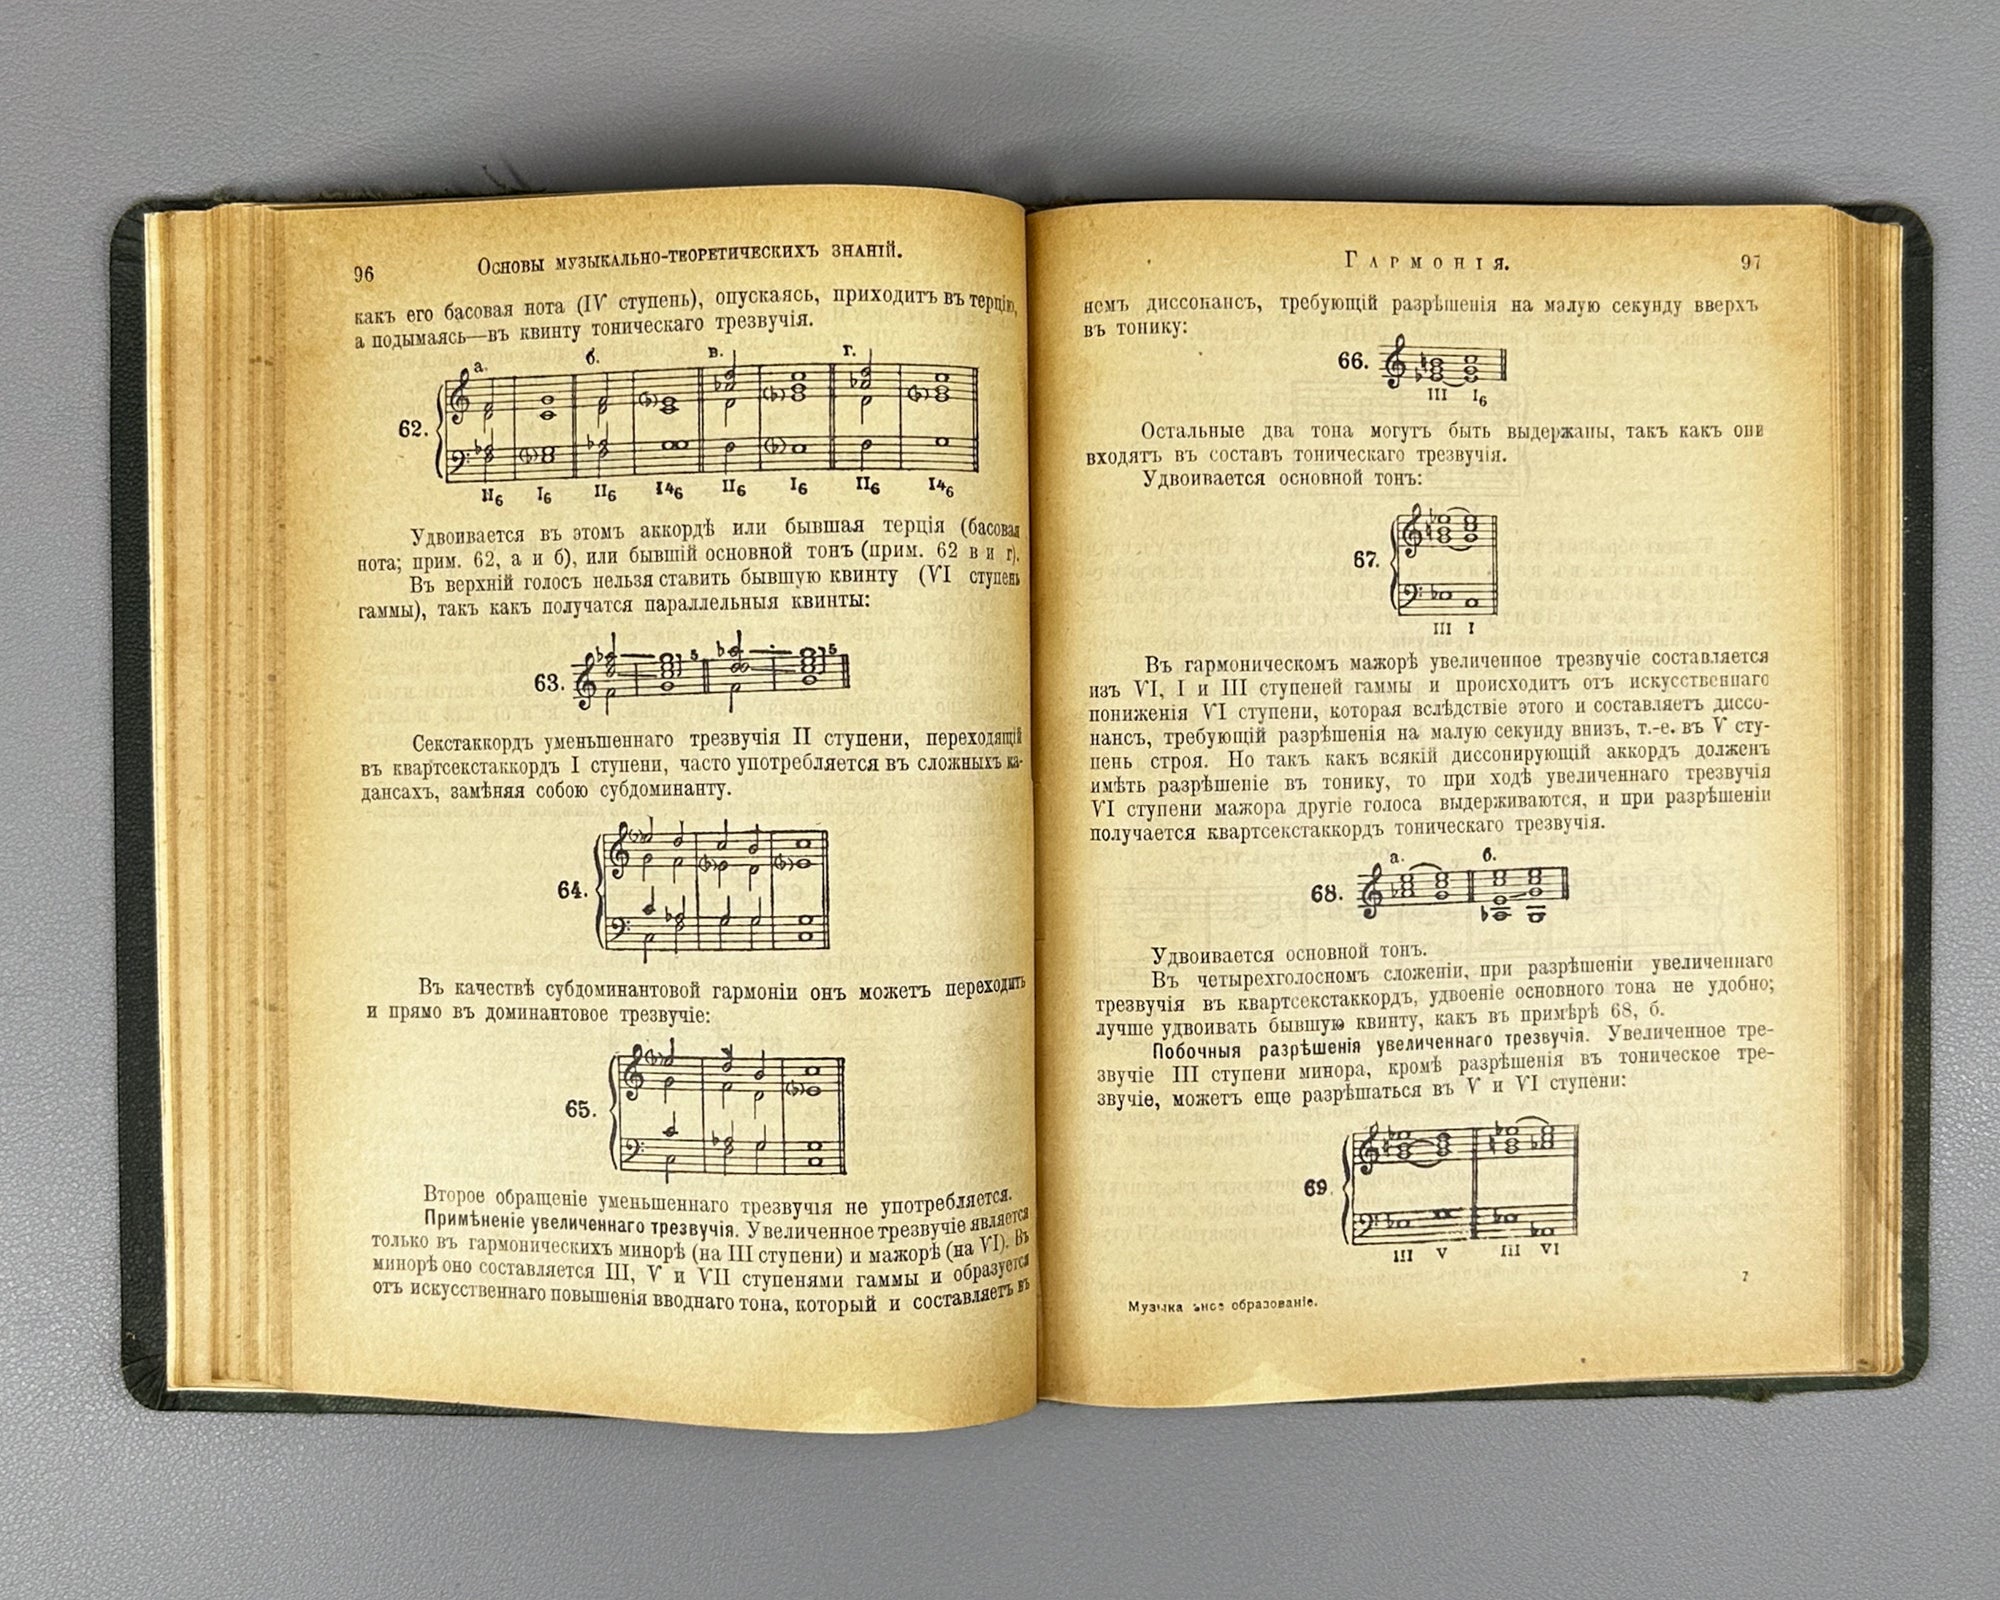 96
Основы музыкально-теоретическихъ знаній.
какъ его басовая нота (IV ступень), опускаясь, приходитъ въ терцію,
а подымаясь—въ квинту тоническаго трезвучія.
а. б. в. г.
62.
II6 I6 II6 I46 II6 I6 II6 I46
Удвоивается въ этомъ аккордѣ или бывшая терція (басовая
нота; прим. 62, а и б), или бывшій основной тонъ (прим. 62 в и г).
Въ верхній голосъ нельзя ставить бывшую квинту (VI ступень
гаммы), такъ какъ получатся параллельныя квинты:
63.
5 5
Секстаккордъ уменьшеннаго трезвучія II ступени, переходящій
въ квартсекстаккордъ I ступени, часто употребляется въ сложныхъ ка-
дансахъ, замѣняя собою субдоминанту.
64.
Въ качествѣ субдоминантовой гармоніи онъ можетъ переходить
и прямо въ доминантовое трезвучіе:
65.
Второе обращеніе уменьшеннаго трезвучія не употребляется.
Примѣненіе увеличеннаго трезвучія. Увеличенное трезвучіе является
только въ гармоническихъ минорѣ (на III ступени) и мажорѣ (на VI). Въ
минорѣ оно составляется III, V и VII ступенями гаммы и образуется
отъ искусственнаго повышенія вводнаго тона, который и составляетъ въ
Гармонія.
97
немъ диссонансъ, требующій разрѣшенія на малую секунду вверхъ
въ тонику:
66.
III I6
Остальные два тона могутъ быть выдержаны, такъ какъ они
входятъ въ составъ тоническаго трезвучія.
Удвоивается основной тонъ:
67.
III I
Въ гармоническомъ мажорѣ увеличенное трезвучіе составляется
изъ VI, I и III ступеней гаммы и происходитъ отъ искусственнаго
пониженія VI ступени, которая вслѣдствіе этого и составляетъ диссо-
нансъ, требующій разрѣшенія на малую секунду внизъ, т.-е. въ V сту-
пень строя. Но такъ какъ всякій диссонирующій аккордъ долженъ
имѣть разрѣшеніе въ тонику, то при ходѣ увеличеннаго трезвучія
VI ступени мажора другіе голоса выдерживаются, и при разрѣшеніи
получается квартсекстаккордъ тоническаго трезвучія.
а. б.
68.
Удвоивается основной тонъ.
Въ четырехголосномъ сложеніи, при разрѣшеніи увеличеннаго
трезвучія въ квартсекстаккордъ, удвоеніе основного тона не удобно;
лучше удвоивать бывшую квинту, какъ въ примѣрѣ 68, б.
Побочныя разрѣшенія увеличеннаго трезвучія. Увеличенное тре-
звучіе III ступени минора, кромѣ разрѣшенія въ тоническое тре-
звучіе, можетъ еще разрѣшаться въ V и VI ступени:
69.
III V III VI
7
образованіе.